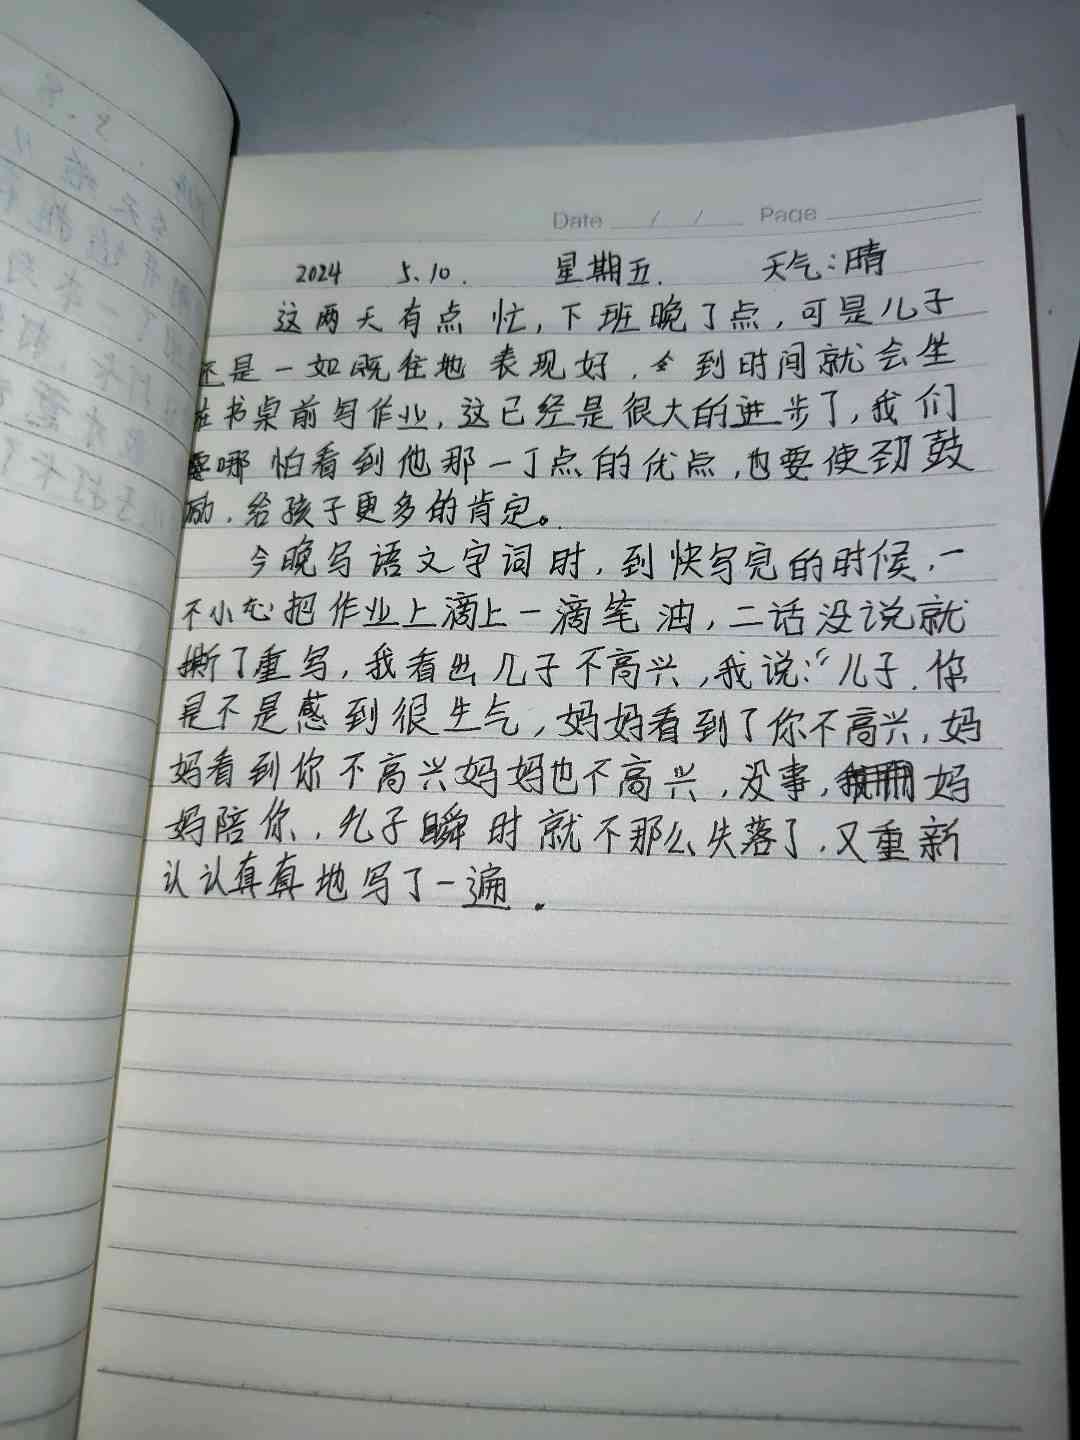 Date / / Page
2024 5.10. 星期五. 天气:晴
这两天有点忙,下班晚了点,可是儿子
还是一如既往地表现好,到时间就会坐
在书桌前写作业,这已经是很大的进步了,我们
哪怕看到他那一丁点的优点,也要使劲鼓
励,给孩子更多的肯定。
今晚写语文字词时,到快写完的时候,一
不小心把作业上滴上一滴笔油,二话没说就
撕了重写,我看出儿子不高兴,我说:“儿子,你
是不是感到很生气,妈妈看到了你不高兴,妈
妈看到你不高兴妈妈也不高兴,没事,妈
妈陪你,儿子瞬时就不那么失落了,又重新
认认真真地写了一遍.